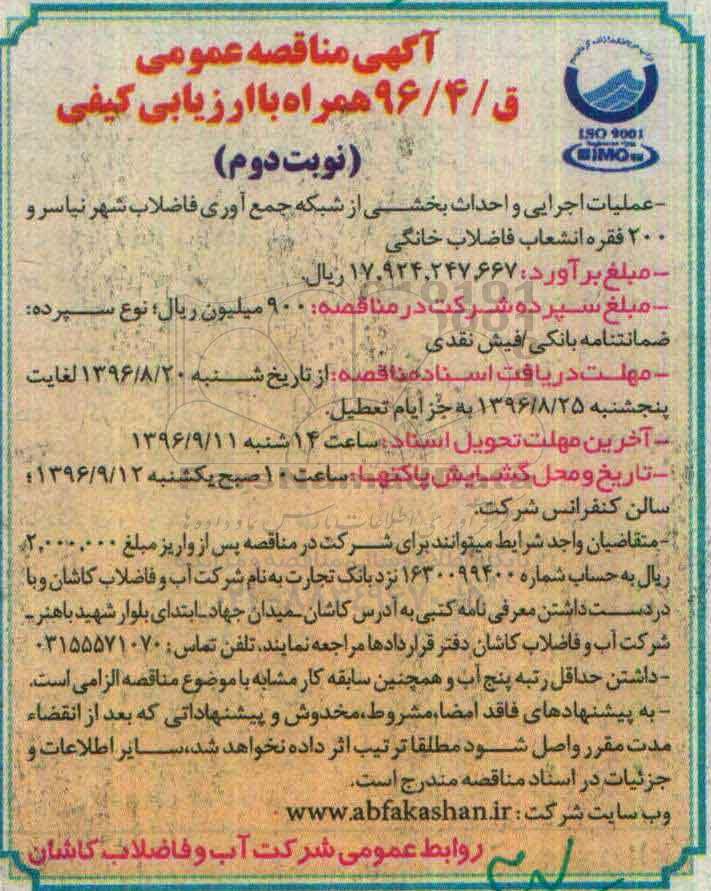 آگهی مناقصه عمومی
ق/۹۶/۴ همراه با ارزیابی کیفی
ISO 9001
IMQ
(نوبت دوم)
-عملیات اجرایی و احداث بخشی از شبکه جمع آوری فاضلاب شهر نیاسر و
۲۰۰ فقره انشعاب فاضلاب خانگی
-مبلغ برآورد: ۱۷,۹۲۴,۲۴۷,۶۶۷ ریال.
-مبلغ سپرده شرکت در مناقصه: ۹۰۰ میلیون ریال؛ نوع سپرده:
ضمانتنامه بانکی/فیش نقدی
-مهلت دریافت اسناد مناقصه: از تاریخ شنبه ۱۳۹۶/۸/۲۰ لغایت
پنجشنبه ۱۳۹۶/۸/۲۵ به جز ایام تعطیل.
-آخرین مهلت تحویل اسناد: ساعت ۱۴ شنبه ۱۳۹۶/۹/۱۱
-تاریخ و محل گشایش پاکتها: ساعت ۱۰ صبح یکشنبه ۱۳۹۶/۹/۱۲؛
سالن کنفرانس شرکت.
-متقاضیان واجد شرایط میتوانند برای شرکت در مناقصه پس از واریز مبلغ ۲,۰۰۰,۰۰۰
ریال به حساب شماره ۱۶۳۰۰۹۹۴۰۰ نزد بانک تجارت به نام شرکت آب و فاضلاب کاشان و با
در دست داشتن معرفی نامه کتبی به آدرس کاشان-میدان جهاد-ابتدای بلوار شهید باهنر-
شرکت آب و فاضلاب کاشان دفتر قراردادها مراجعه نمایند، تلفن تماس: ۰۳۱۵۵۵۷۱۰۷۰
-داشتن حداقل رتبه پنج آب و همچنین سابقه کار مشابه با موضوع مناقصه الزامی است.
-به پیشنهادهای فاقد امضا،مشروط،مخدوش و پیشنهاداتی که بعد از انقضاء
مدت مقرر واصل شود مطلقا ترتیب اثر داده نخواهد شد،سایر اطلاعات و
جزئیات در اسناد مناقصه مندرج است.
وب سایت شرکت: www.abfakashan.ir
روابط عمومی شرکت آب و فاضلاب کاشان